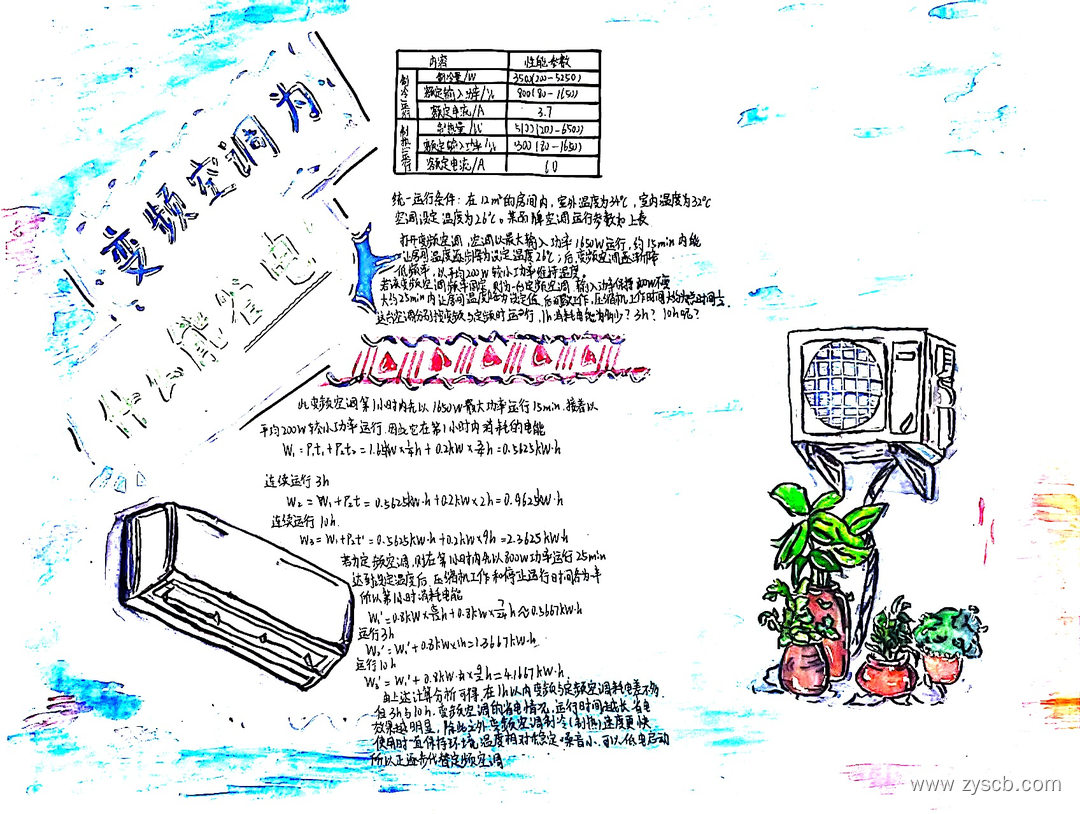 变频空调为
什么能省电
内容 性能参数
制冷运行 制冷量/W 3500(200-5250)
额定输入功率/W 800(80-1650)
额定电流/A 3.7
制热运行 制热量/W
额定输入功率/W
额定电流/A 6.0
统一运行条件:在12m²的房间内,室外温度为34℃,室内温度为32℃
空调设定温度为26℃。某品牌空调运行参数如上表
打开变频空调,空调以最大输入功率1650W运行,约15min内能
让房间温度逐步降为设定温度26℃;后,变频空调逐渐降
低频率,以平均200W较小功率维持温度。
若该变频空调频率固定,则为一台定频空调,输入功率保持800W不变
大约25min内让房间温度降为设定值,后间歇工作,压缩机工作时间
这台空调分别按变频与定频时运行,1h消耗电能为多少?3h?10h呢?
此变频空调第1小时内先以1650W最大功率运行15min,接着以
平均200W较小功率运行,因此它在第1小时内消耗的电能
W₁=P₁t₁+P₂t₂=1.65kW×¼h+0.2kW×¾h=0.5625kW·h
连续运行3h
W₂=W₁+P₂t=0.5625kW·h+0.2kW×2h=0.9625kW·h
连续运行10h.
W₃=W₁+P₂t'=0.5625kW·h+0.2kW×9h=2.3625kW·h
若为定频空调,则在第1小时内先以800W功率运行25min
达到设定温度后,压缩机工作和停止运行时间各为半
所以第1小时消耗电能
W₁'=0.8kW×5/12h+0.8kW×7/24h≈0.5667kW·h
运行3h
W₂'=W₁'+0.8kW×1h=1.3667kW·h
运行10h
W₃'=W₁'+0.8kW×9/2h=4.1667kW·h.
由上述计算分析可得,在1h以内变频与定频空调耗电差不多
但3h与10h,变频空调的省电情况,运行时间越长,省电
效果越明显,除此之外,变频空调制冷(制热)速度更快
使用时一直保持环境温度相对稳定噪音小,可以低电启动
所以正逐步代替定频空调
www.zyscb.com